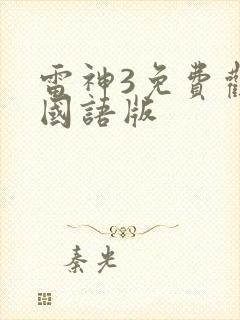 雷神3免費
國語版
秦光